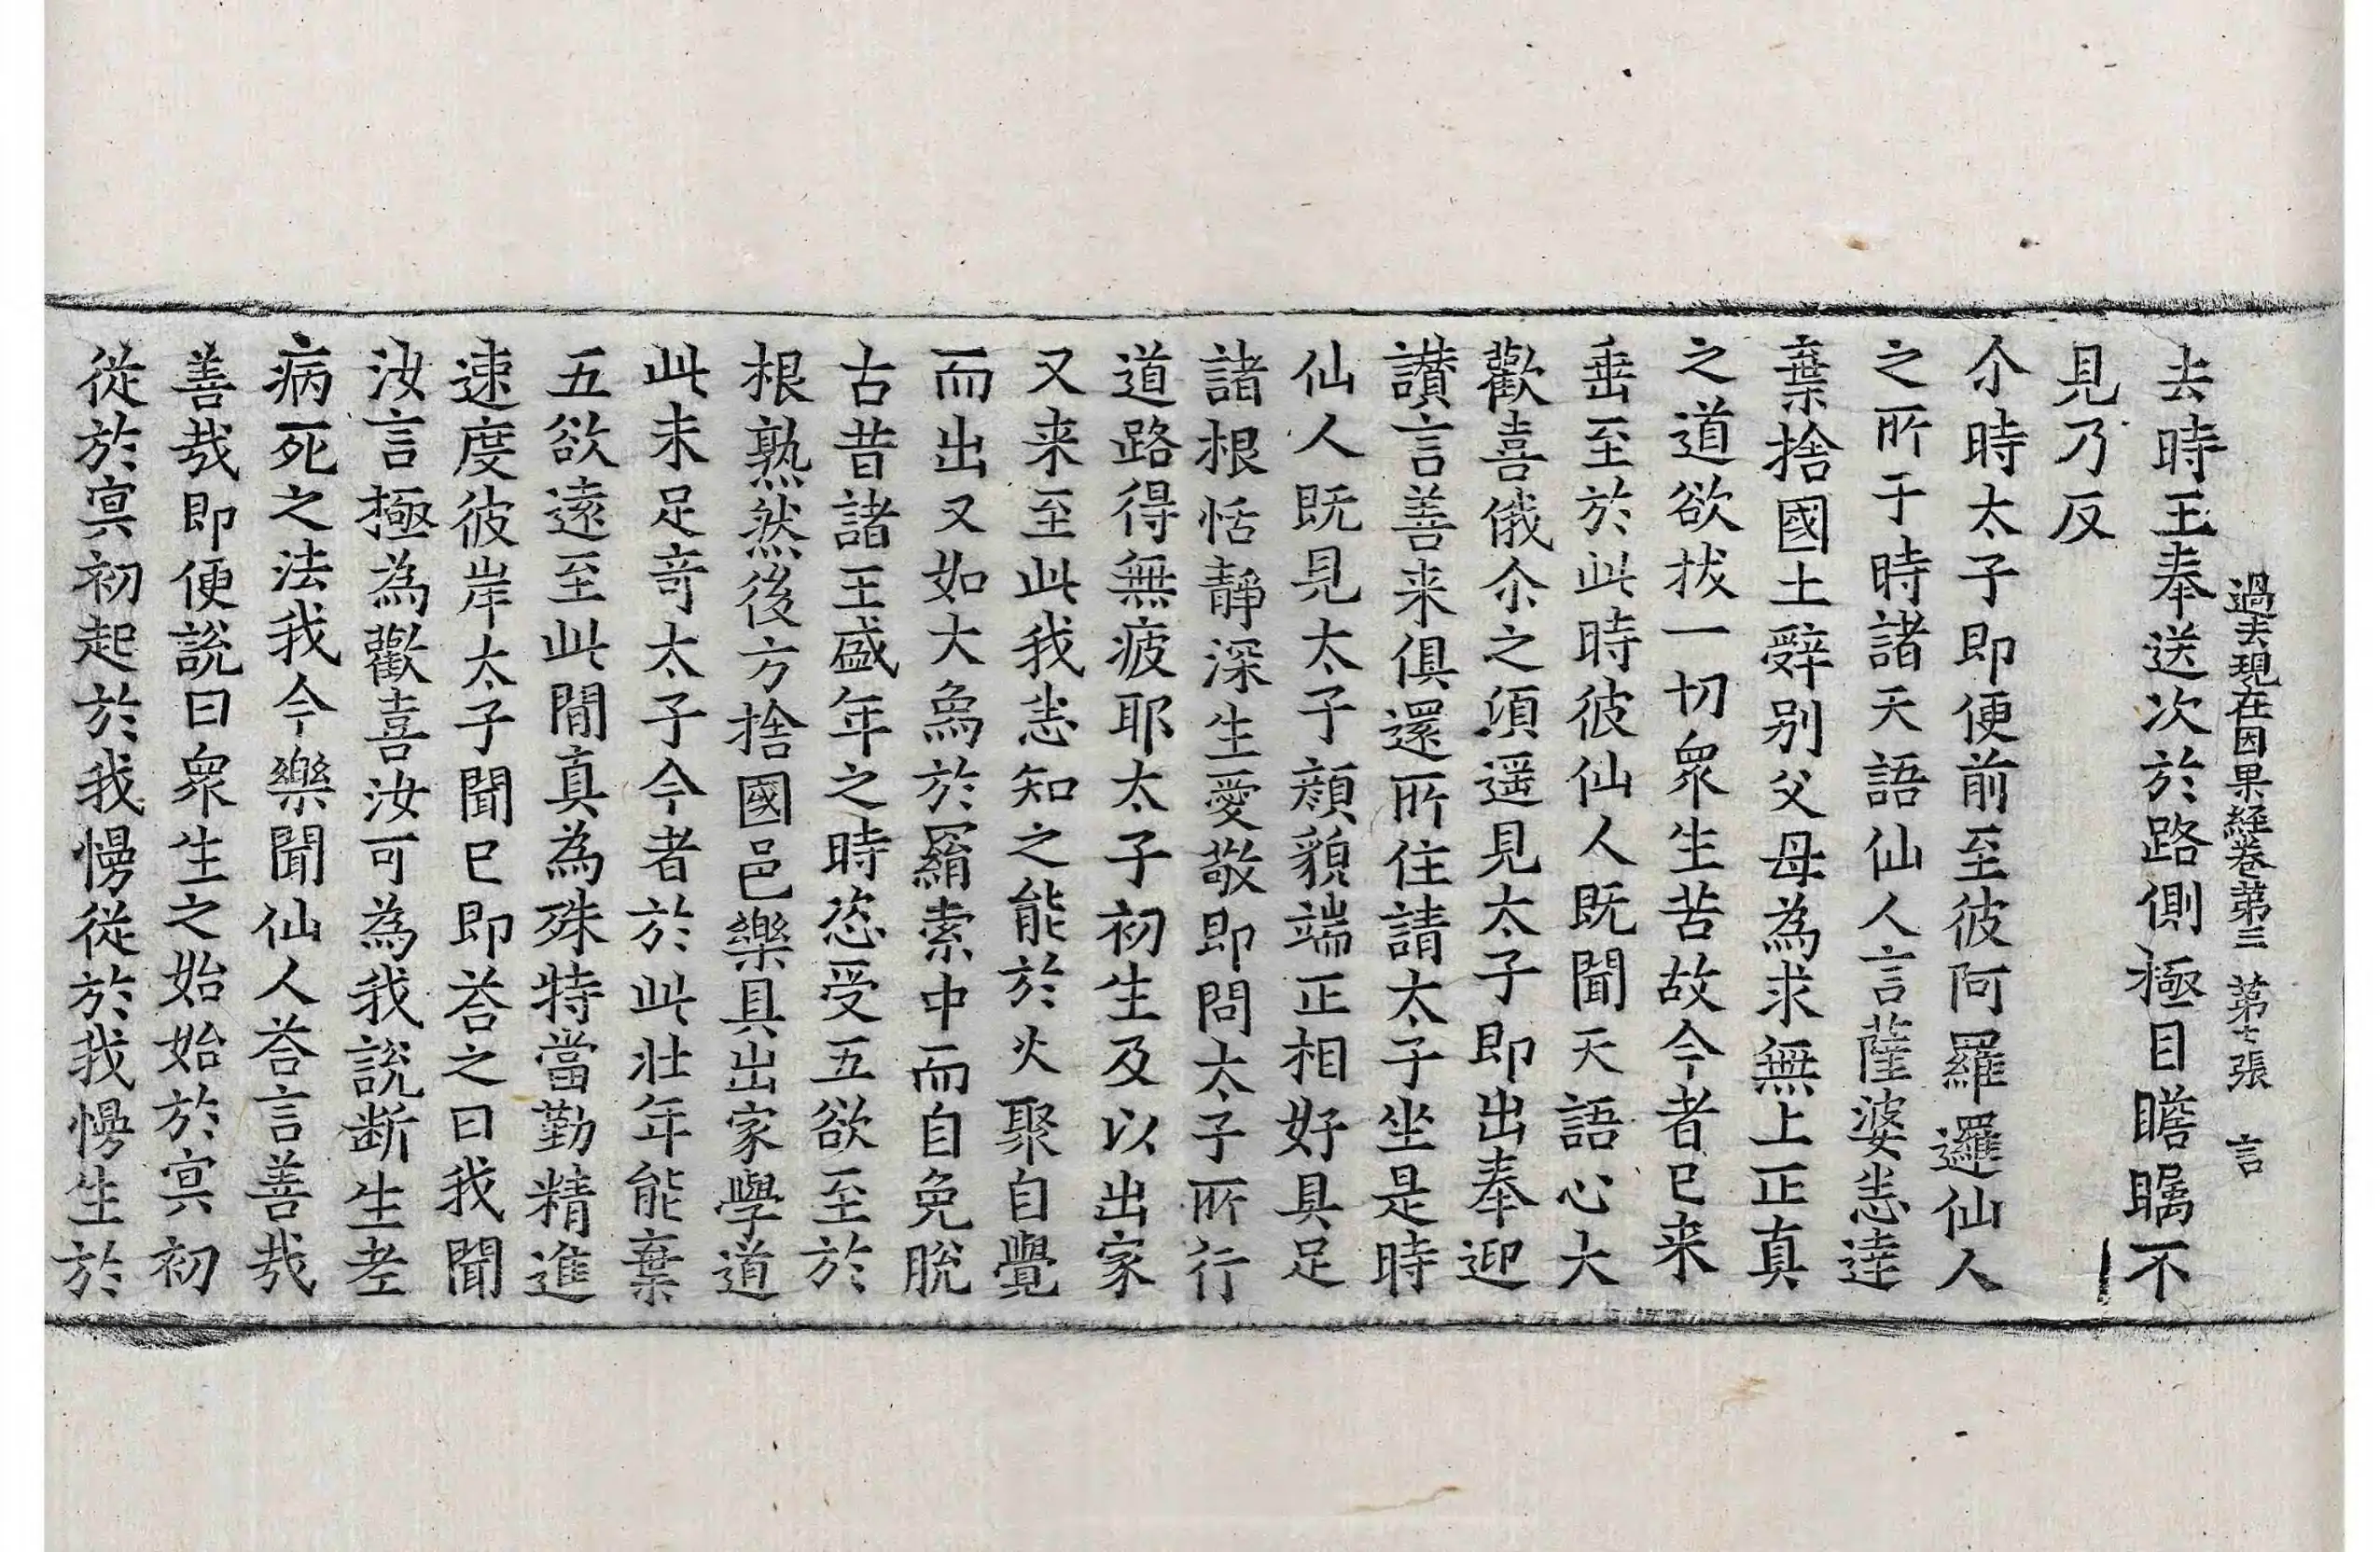 過去現在因果経卷第三　第七張　言
去時王奉送次於路側極目瞻矚不
見乃反
尒時太子即便前至彼阿羅邏仙人
之所于時諸天語仙人言薩婆悉達
棄捨國土辤别父母為求無上正真
之道欲拔一切衆生苦故今者已来
垂至於此時彼仙人既聞天語心大
歡喜俄尒之須遥見太子即出奉迎
讃言善来俱還所住請太子坐是時
仙人既見太子顔貌端正相好具足
諸根恬靜深生愛敬即問太子所行
道路得無疲耶太子初生及以出家
又来至此我悉知之能於火聚自覺
而出又如大象於羂索中而自免脫
古昔諸王盛年之時恣受五欲至於
根熟然後方捨國邑樂具出家學道
此未足竒太子今者於此壮年能棄
五欲遠至此間真為殊特當勤精進
速度彼岸太子聞已即荅之曰我聞
汝言極為歡喜汝可為我說断生老
病死之法我今樂聞仙人荅言善哉
善哉即便說曰衆生之始始於冥初
從於冥初起於我慢從於我慢生於